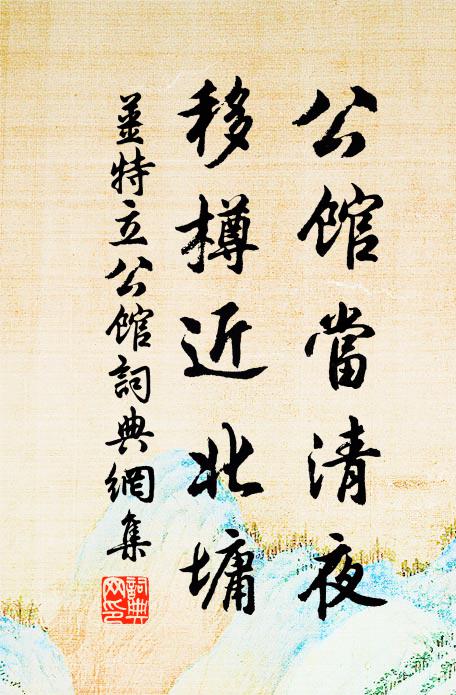 公館當清夜
移樽近北墉
姜特立公館詞典網集
詞典